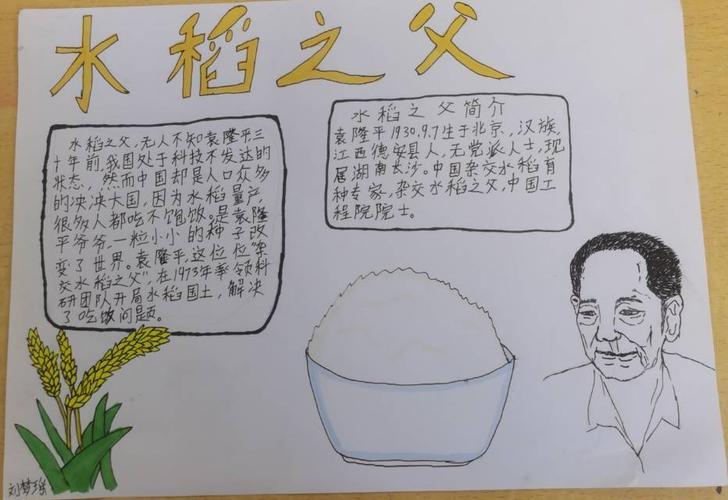 水稻之父
水稻之父，无人不知袁隆平，三
十年前，我国处于科技不发达的
状态，然而中国却是人口众多
的泱泱大国，因为水稻量产，
很多人都吃不饱饭。是袁隆
平爷爷，一粒小小的种子改
变了世界。袁隆平，这位位“杂
交水稻之父”，在1973年率领科
研团队开局水稻国土，解决
了吃饭问题。
水稻之父简介
袁隆平1930.9.7生于北京，汉族，
江西德安县人，无党派人士，现
居湖南长沙。中国杂交水稻育
种专家，杂交水稻之父，中国工
程院院士。
刘梦瑶